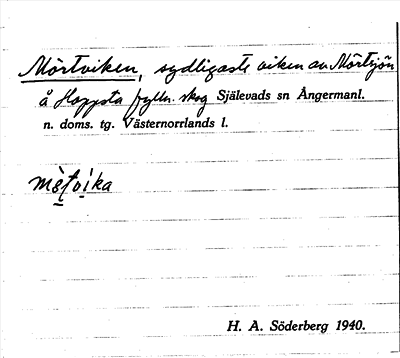 Mörtviken, sydligaste viken av Mörtsjön
å Hoppsta bylln. skog Själevads sn Ångermanl.
n. doms. tg. Västernorrlands l.
H. A. Söderberg 1940.